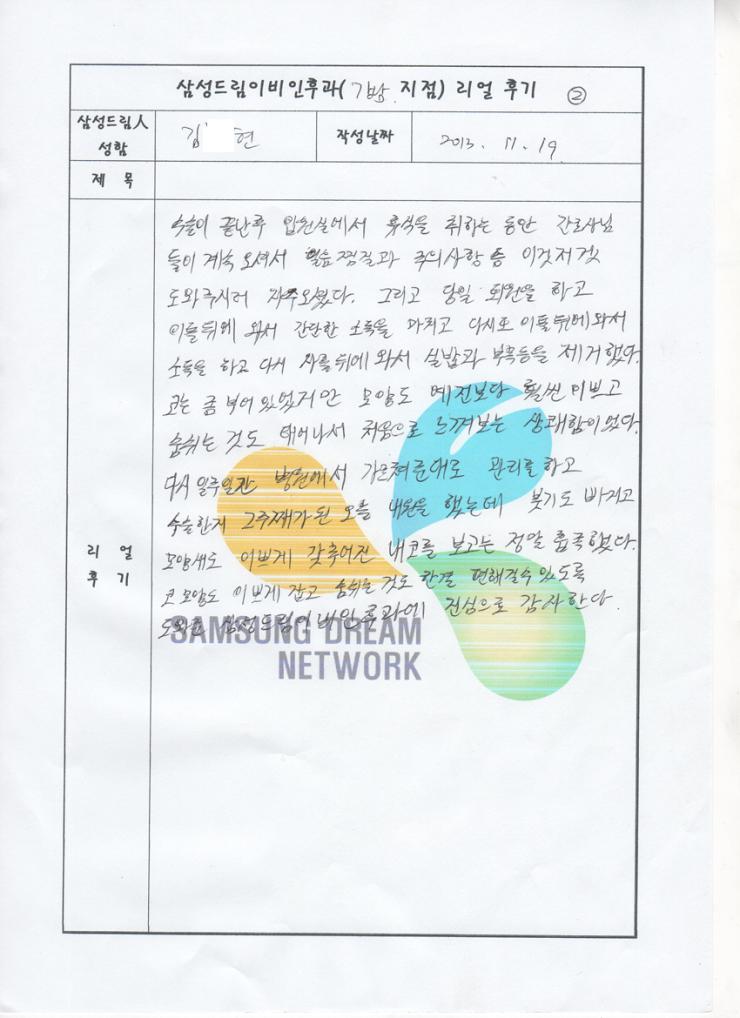 삼성드림이비인후과( 지점) 리얼 후기 ②
삼성드림人
성함
김 현
작성날짜
2013. 11. 19.
제 목
수술이 끝난후 입원실에서 휴식을 취하는 동안 간호사님
들이 계속 오셔서 찜질과 주의사항 등 이것저것
도와주시러 자주오셨다. 그리고 당일 퇴원을 하고
이틀뒤에 와서 간단한 소독을 마치고 다시또 이틀뒤에와서
소독을 하고 다시 사흘뒤에 와서 실밥과 부목등을 제거했다.
코는 좀 부어있었지만 모양도 예전보다 훨씬 이쁘고
숨쉬는 것도 태어나서 처음으로 느껴보는 상쾌함이었다.
다시 일주일간 병원에서 가르쳐준대로 관리를 하고
수술한지 2주째가 된 오늘 내원을 했는데 붓기도 빠지고
모양새도 이쁘게 갖추어진 내코를 보고는 정말 흡족했다.
코 모양도 이쁘게 잡고 숨쉬는것도 한결 편해질수 있도록
도와준 삼성드림이비인후과에 진심으로 감사한다.
리 얼
후 기
SAMSUNG DREAM
NETWORK